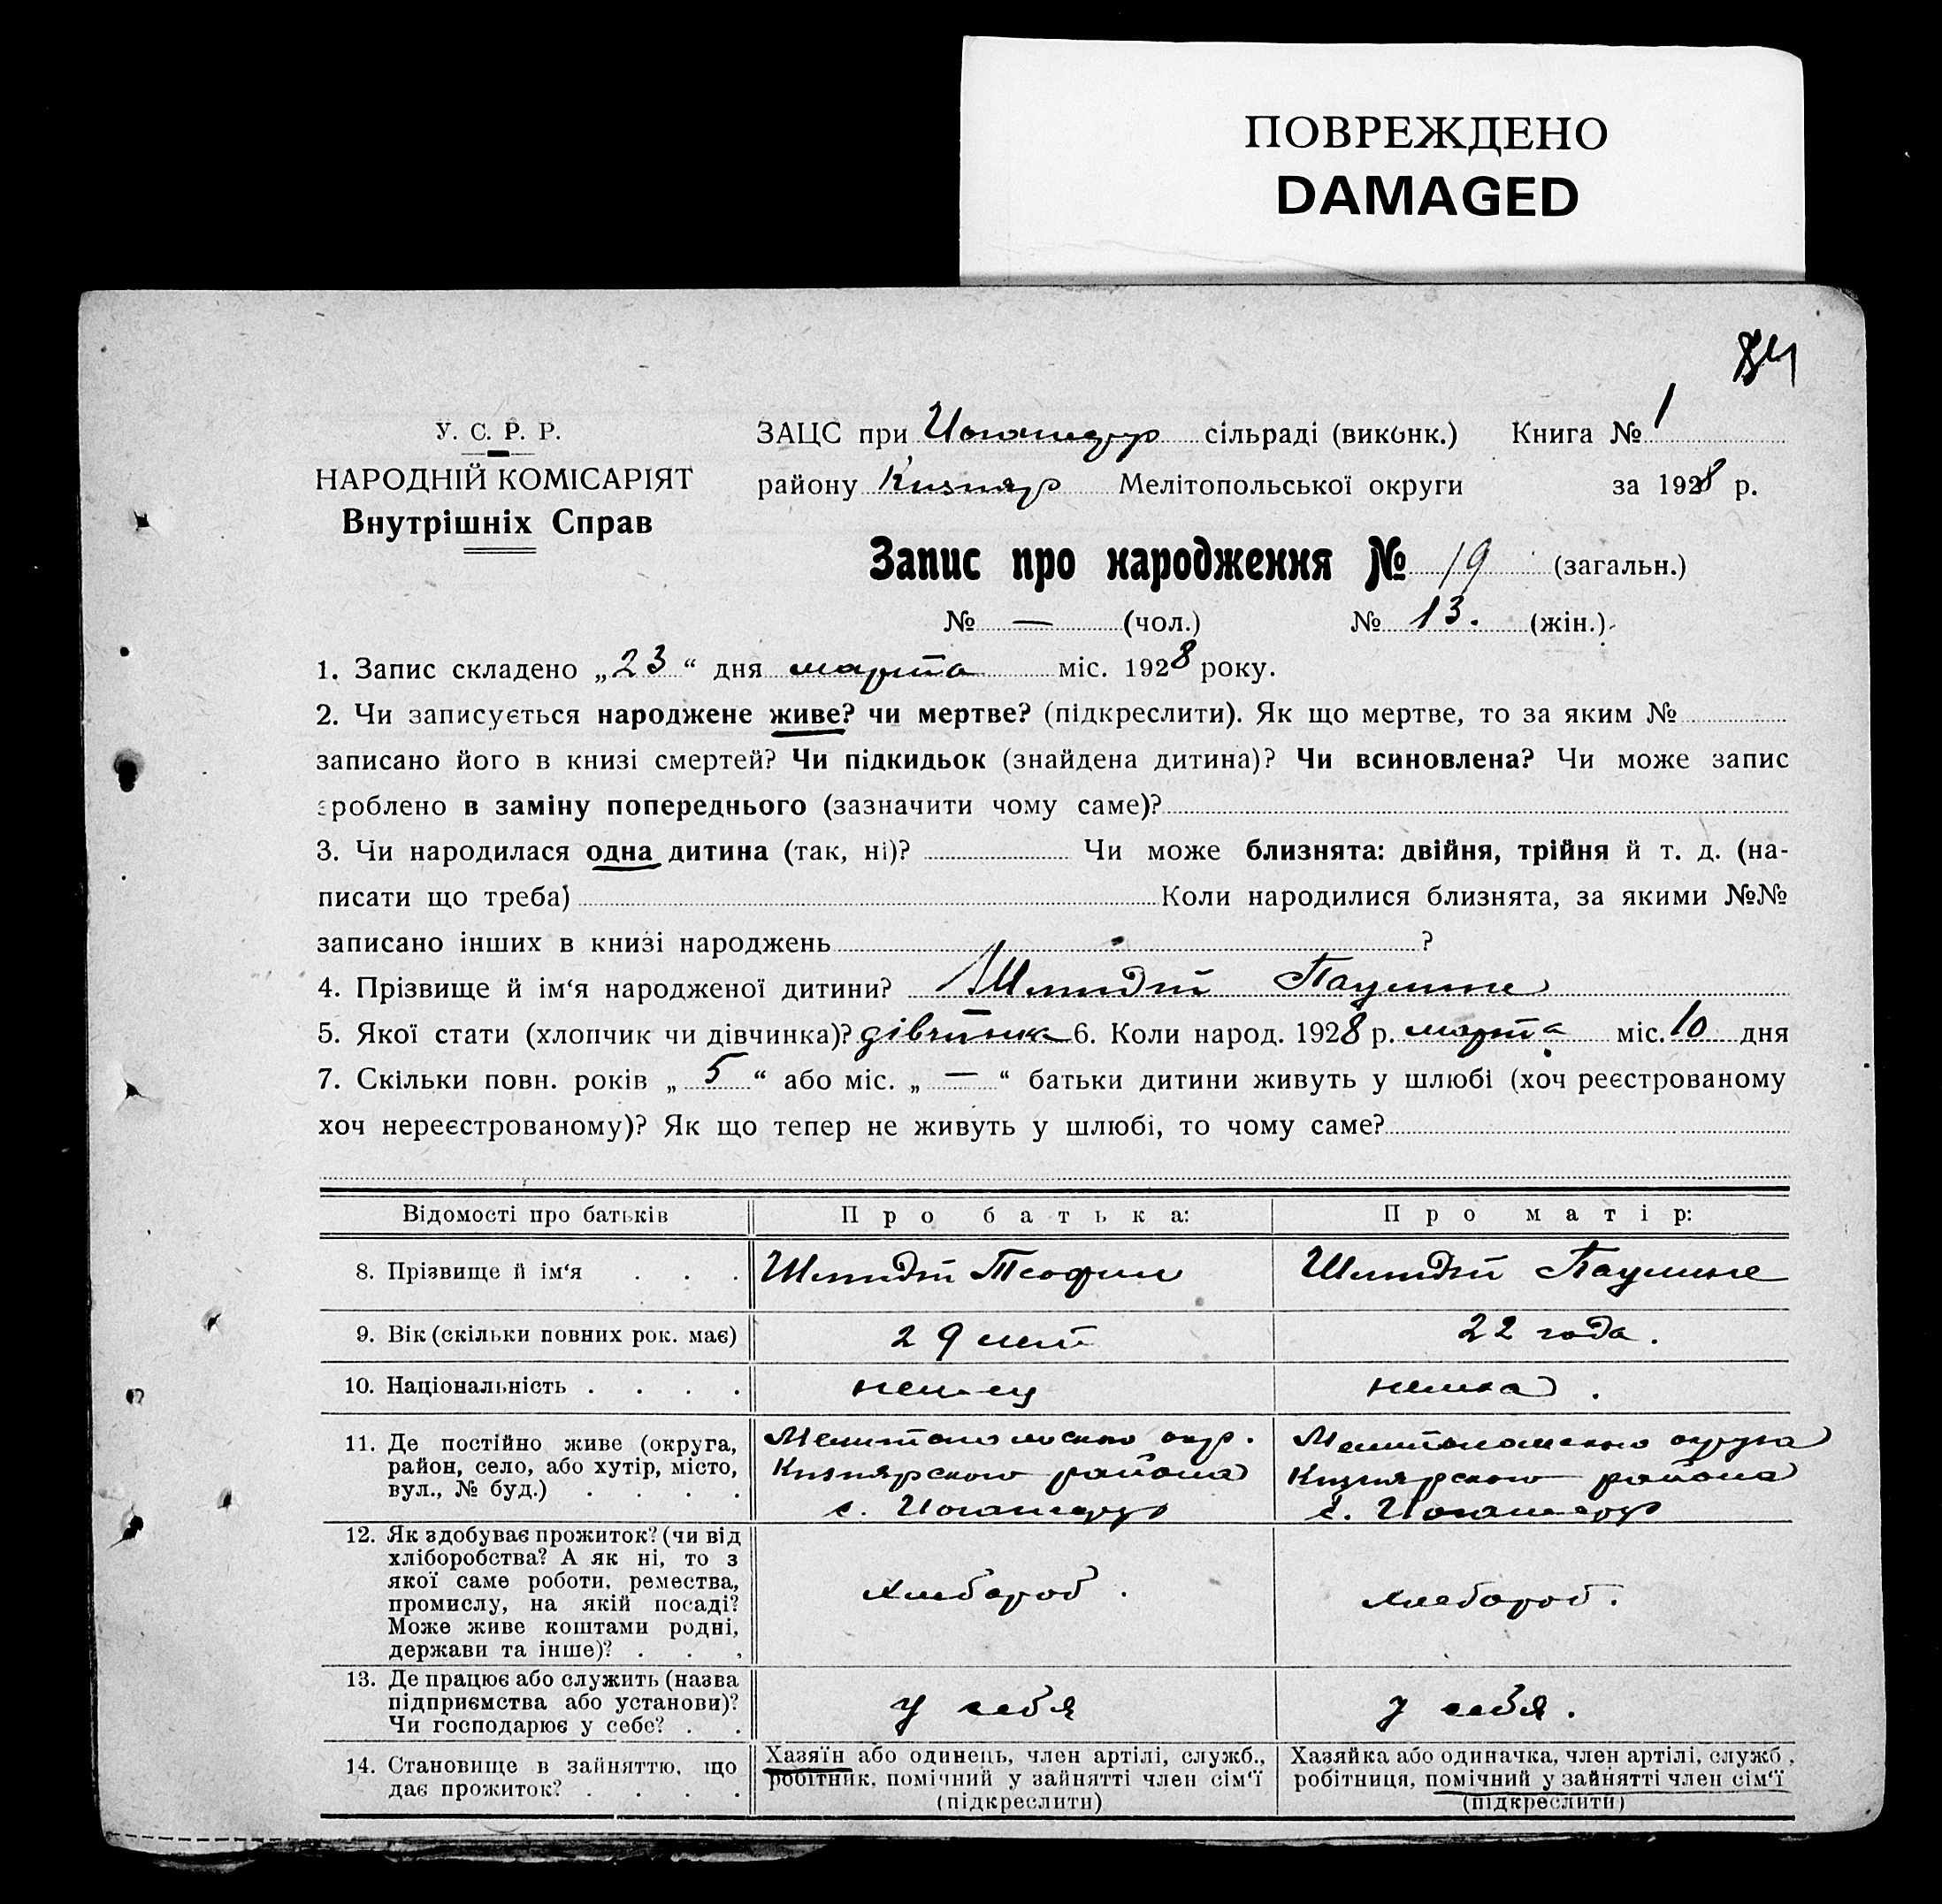 ПОВРЕЖДЕНО
DAMAGED
84
У. С. Р. Р.
НАРОДНІЙ КОМІСАРІЯТ
Внутрішніх Справ
ЗАЦС при Иогансдур сільраді (виконк.) Книга № 1
району Кизияр Мелітопольської округи за 1928 р.
Запис про народження № 19 (загальн.)
№ — (чол.) № 13. (жін.)
1. Запис складено „23“ дня марта міс. 1928 року.
2. Чи записується народжене живе? чи мертве? (підкреслити). Як що мертве, то за яким №
записано його в книзі смертей? Чи підкидьок (знайдена дитина)? Чи всиновлена? Чи може запис
зроблено в заміну попереднього (зазначити чому саме)?
3. Чи народилася одна дитина (так, ні)? Чи може близнята: двійня, трійня й т. д. (на-
писати що треба) Коли народилися близнята, за якими №№
записано інших в книзі народжень ?
4. Прізвище й ім‘я народженої дитини? Шмидт Паулине
5. Якої стати (хлопчик чи дівчинка)? дівчинка 6. Коли народ. 1928 р. марта міс. 10 дня
7. Скільки повн. років „ 5 “ або міс. „ — “ батьки дитини живуть у шлюбі (хоч реєстрованому
хоч нереєстрованому)? Як що тепер не живуть у шлюбі, то чому саме?
Відомості про батьків Про батька: Про матір:
8. Прізвище й ім‘я . . . Шмидт Теофил Шмидт Паулине
9. Вік (скільки повних рок. має) 29 лет 22 года.
10. Національність . . . . немец немка.
11. Де постійно живе (округа,
район, село, або хутір, місто,
вул., № буд.) . . . .
Мелитопольского окр.
Кизиярского района
с.
Мелитопольского округа
Кизиярского района
с.
12. Як здобуває прожиток? (чи від
хліборобства? А як ні, то з
якої саме роботи, ремества,
промислу, на якій посаді?
Може живе коштами родні,
держави та інше)? . . .
хлебороб.
хлебороб.
13. Де працює або служить (назва
підприємства або установи)?
Чи господарює у себе? . .
у себя
у себя.
14. Становище в зайняттю, що
дає прожиток? . . . .
Хазяїн або одинець, член артілі, служб.,
робітник, помічний у зайнятті член сім‘ї
(підкреслити)
Хазяйка або одиначка, член артілі, служб.,
робітниця, помічний у зайнятті член сім‘ї
(підкреслити)